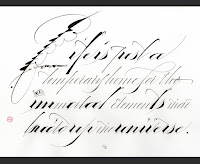 Life is just a
temporary home for the
immortal elements that
build up the universe.